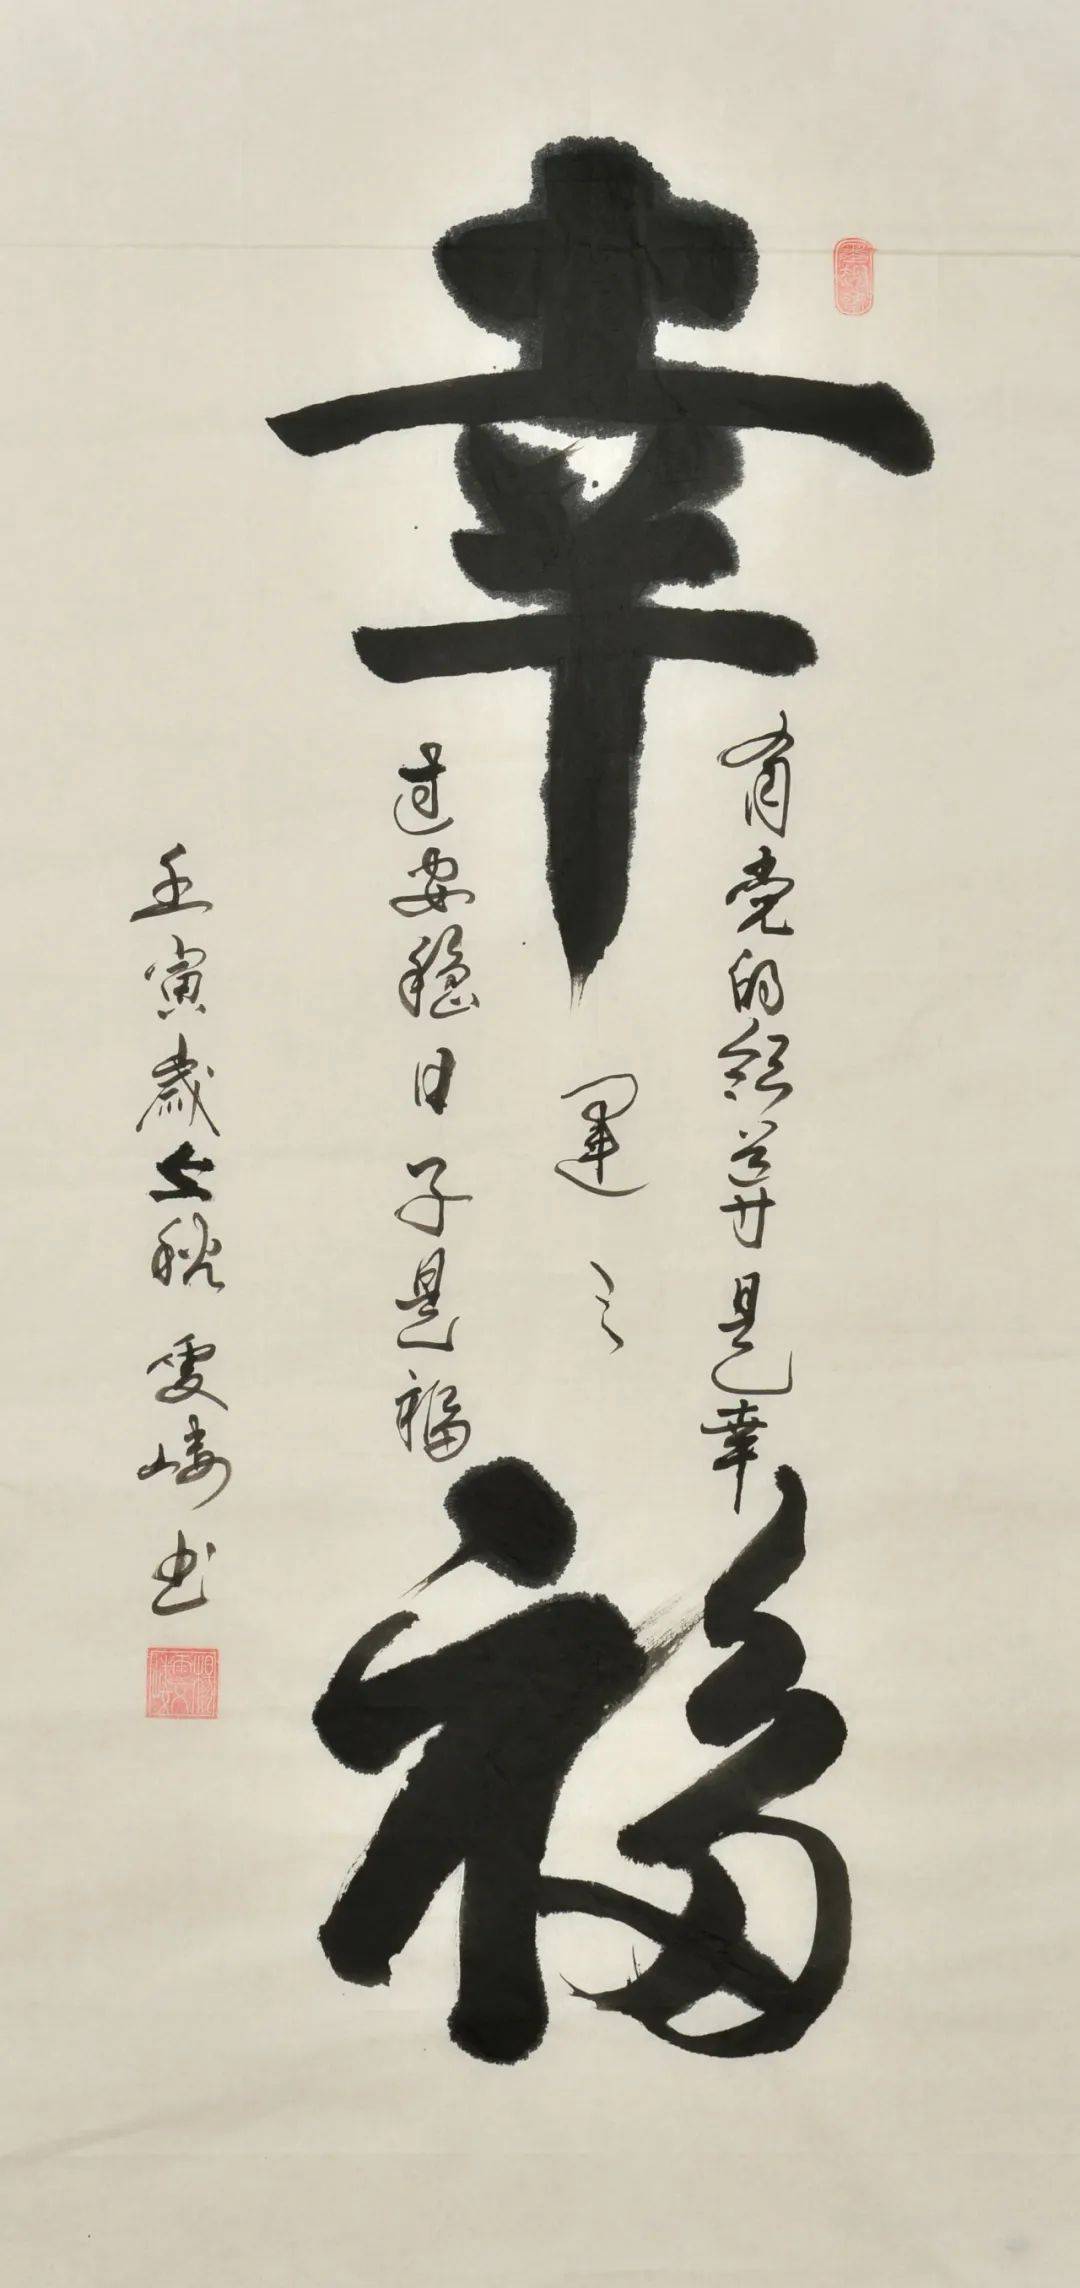 幸福
有党的领导是幸
運之
过安稳日子是福
壬寅歲 秋 书